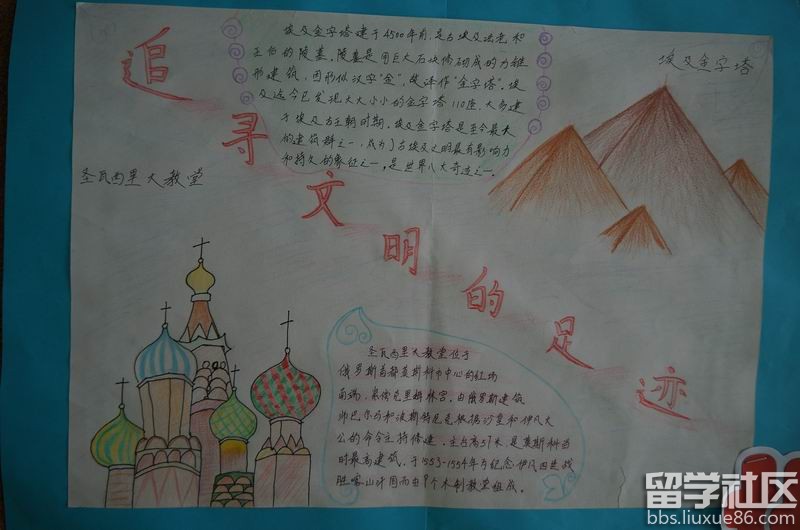 追寻文明的足迹
埃及金字塔建于4500年前,是古埃及法老和
王伯的陵墓。陵墓是用巨大石块修砌成的方锥
形建筑,因形似汉字"金",故译作"金字塔"。埃
及迄今已发现大大小小的金字塔110座,大多建
于埃及古王朝时期。埃及金字塔是至今最大
的建筑群之一,成为了古埃及文明最有影响力
和持久的象征之一,是世界八大奇迹之一。
埃及金字塔
圣瓦西里大教堂
圣瓦西里大教堂位于
俄罗斯首都莫斯科市中心的红场
南端,紧傍克里姆林宫。由俄罗斯建筑
师巴尔马和波斯特尼克根据沙皇和伊凡大
公的命令主持修建。主台高57米,是莫斯科当
时最高建筑。于1553-1554年为纪念伊凡四世战
胜喀山汗国而由8个木制教堂组成。
留学社区
bbs.liuxue86.com